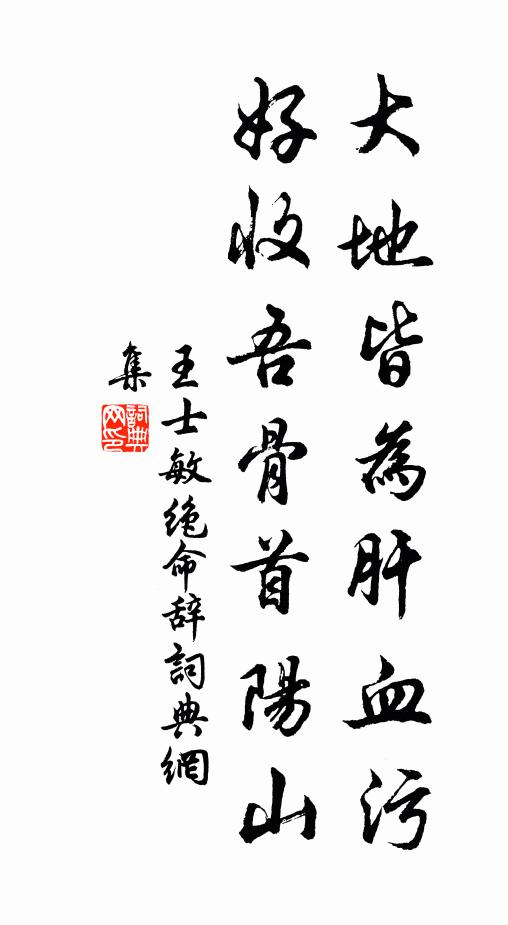 大地皆為肝血污
好收吾骨首陽山
王士敏绝命辞詞典網
集
詞典网印